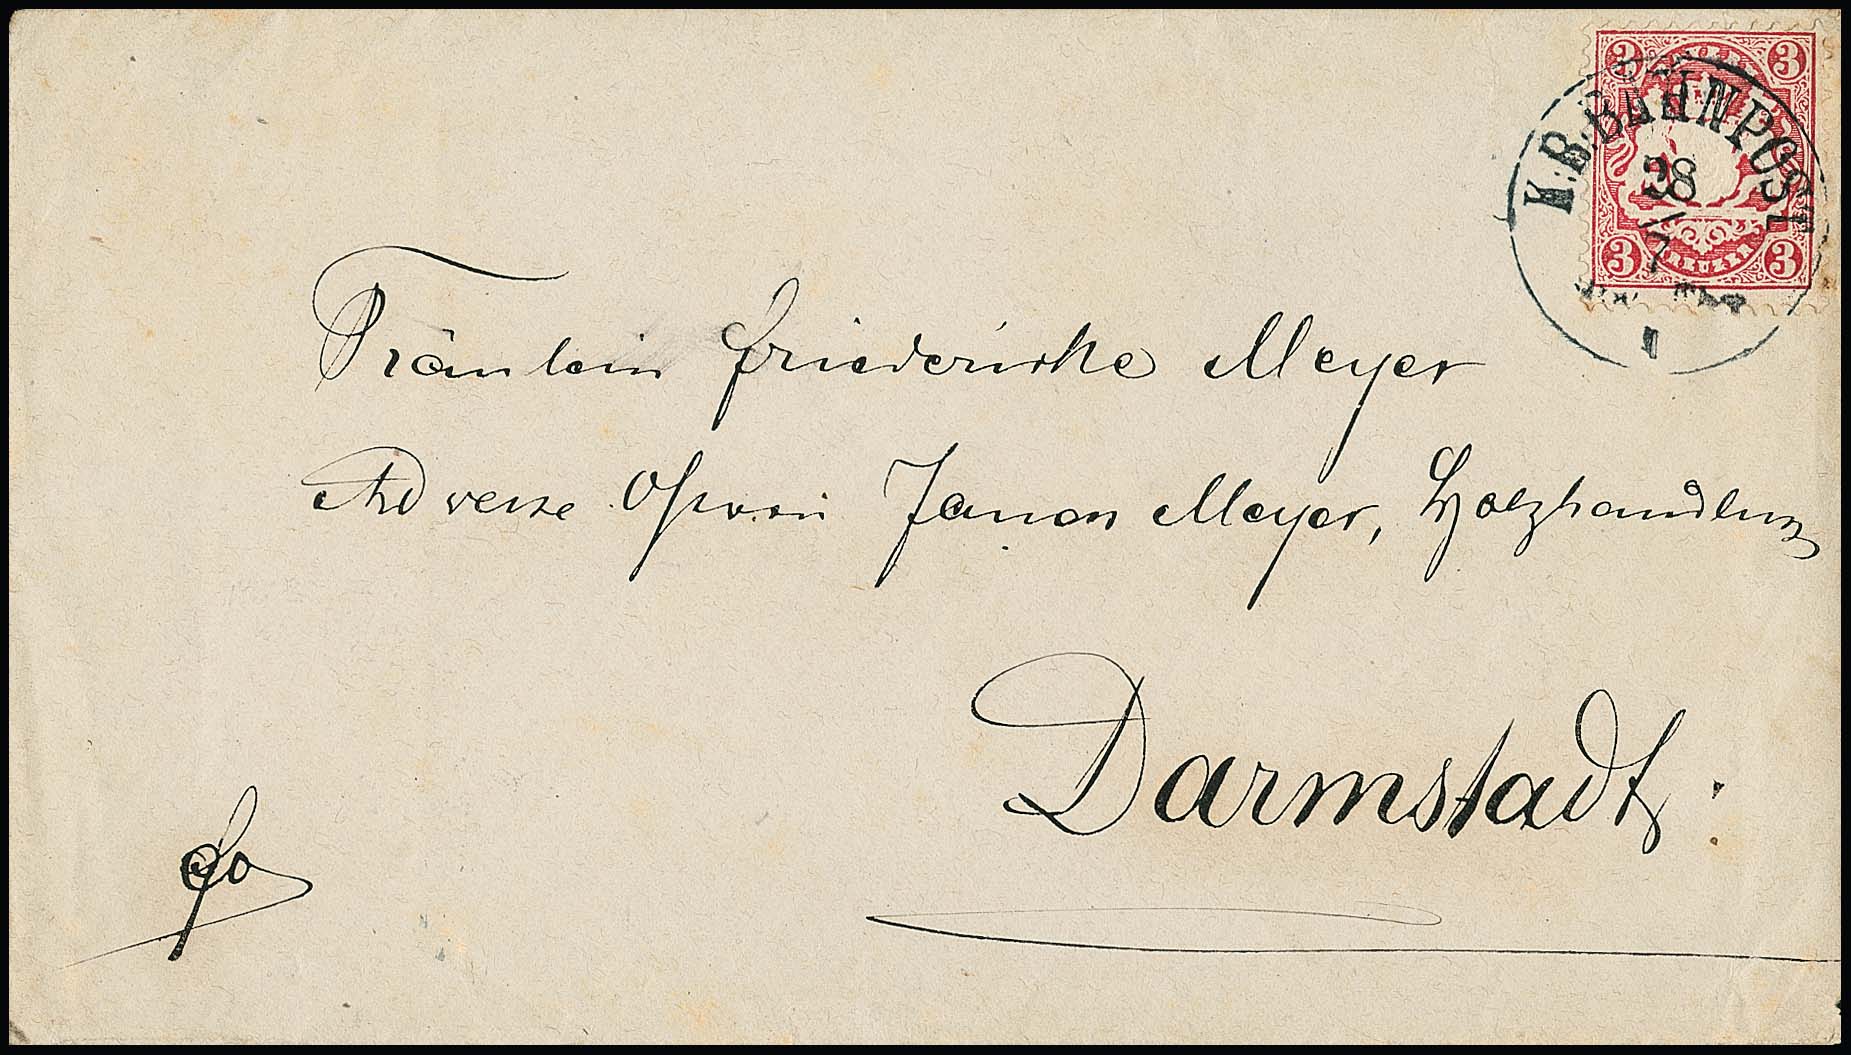 3 3
K.B.BAHNPOST
28
/
7
3 KREUZER 3
I
Fräulein Friedericke Meyer
Adresse Meyer, Holzhandlung
Darmstadt.